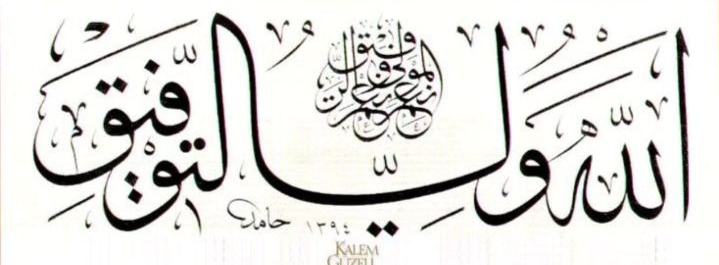 الله ولي التوفيق
نعم المولى ونعم الرفيق
حامد ١٣٩٤
KALEM
GÜZELİ